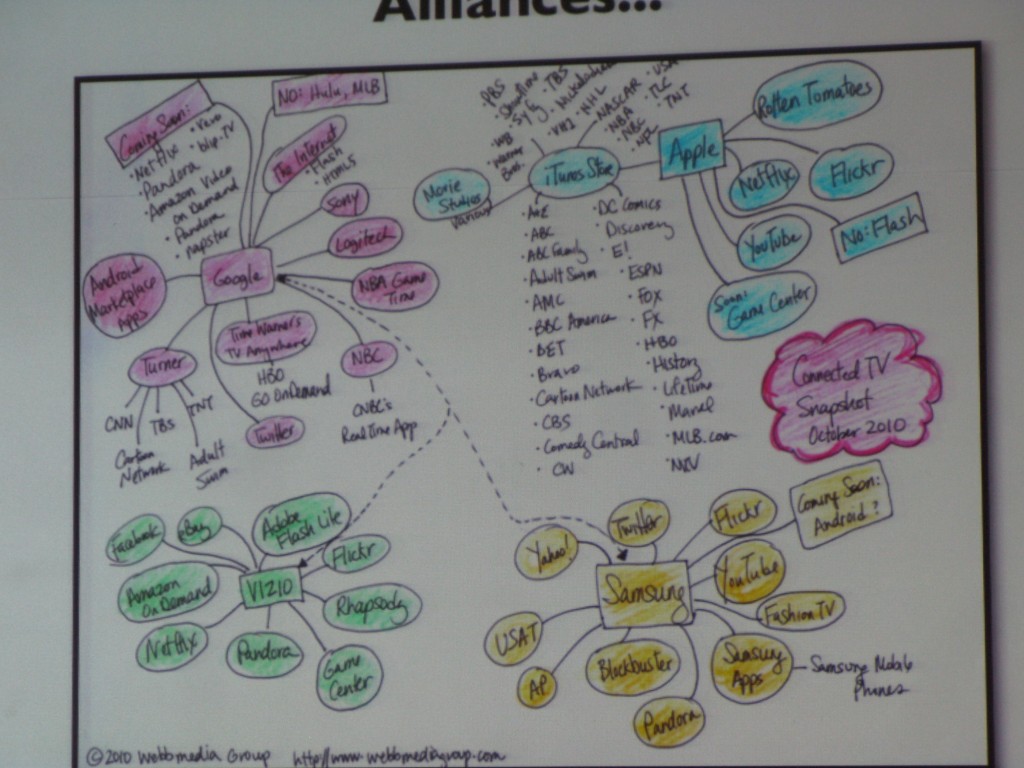 Alliances...
Coming Soon:
• Vevo
• blip.TV
• Netflix
• Pandora
• Amazon Video
on Demand
• Pandora
• napster
NO: Hulu, MLB
The Internet
• Flash
• HTML5
Sony
Logitech
NBA Game
Time
Google
Android
Marketplace
Apps
Turner
CNN
Cartoon
Network
TBS
Adult
Swim
TNT
Time Warner's
TV Anywhere
HBO
GO OnDemand
Twitter
NBC
CNBC's
Real Time App
Movie
Studios
various
iTunes Store
• PBS
• Showtime
• SyFy
• TBS
• Nickelodeon
• USA
• WB
• Warner
Bros.
• VH1
• NHL
• NASCAR
• NBA
• NBC
• NFL
• TLC
• TNT
• A&E
• ABC
• ABC Family
• Adult Swim
• AMC
• BBC America
• BET
• Bravo
• Cartoon Network
• CBS
• Comedy Central
• CW
• DC Comics
• Discovery
• E!
• ESPN
• Fox
• FX
• HBO
• History
• Lifetime
• Marvel
• MLB.com
• MTV
Apple
Rotten Tomatoes
Netflix
Flickr
YouTube
NO: Flash
Soon:
Game Center
Connected TV
Snapshot
October 2010
VIZIO
Facebook
eBay
Adobe
Flash Lite
Flickr
Amazon
On Demand
Rhapsody
Netflix
Pandora
Game
Center
Samsung
Yahoo!
Twitter
Flickr
Coming Soon:
Android?
YouTube
FashionTV
USAT
AP
Blockbuster
Samsung
Apps
Samsung Mobile
Phones
Pandora
© 2010 Webbmedia Group http://www.webbmediagroup.com